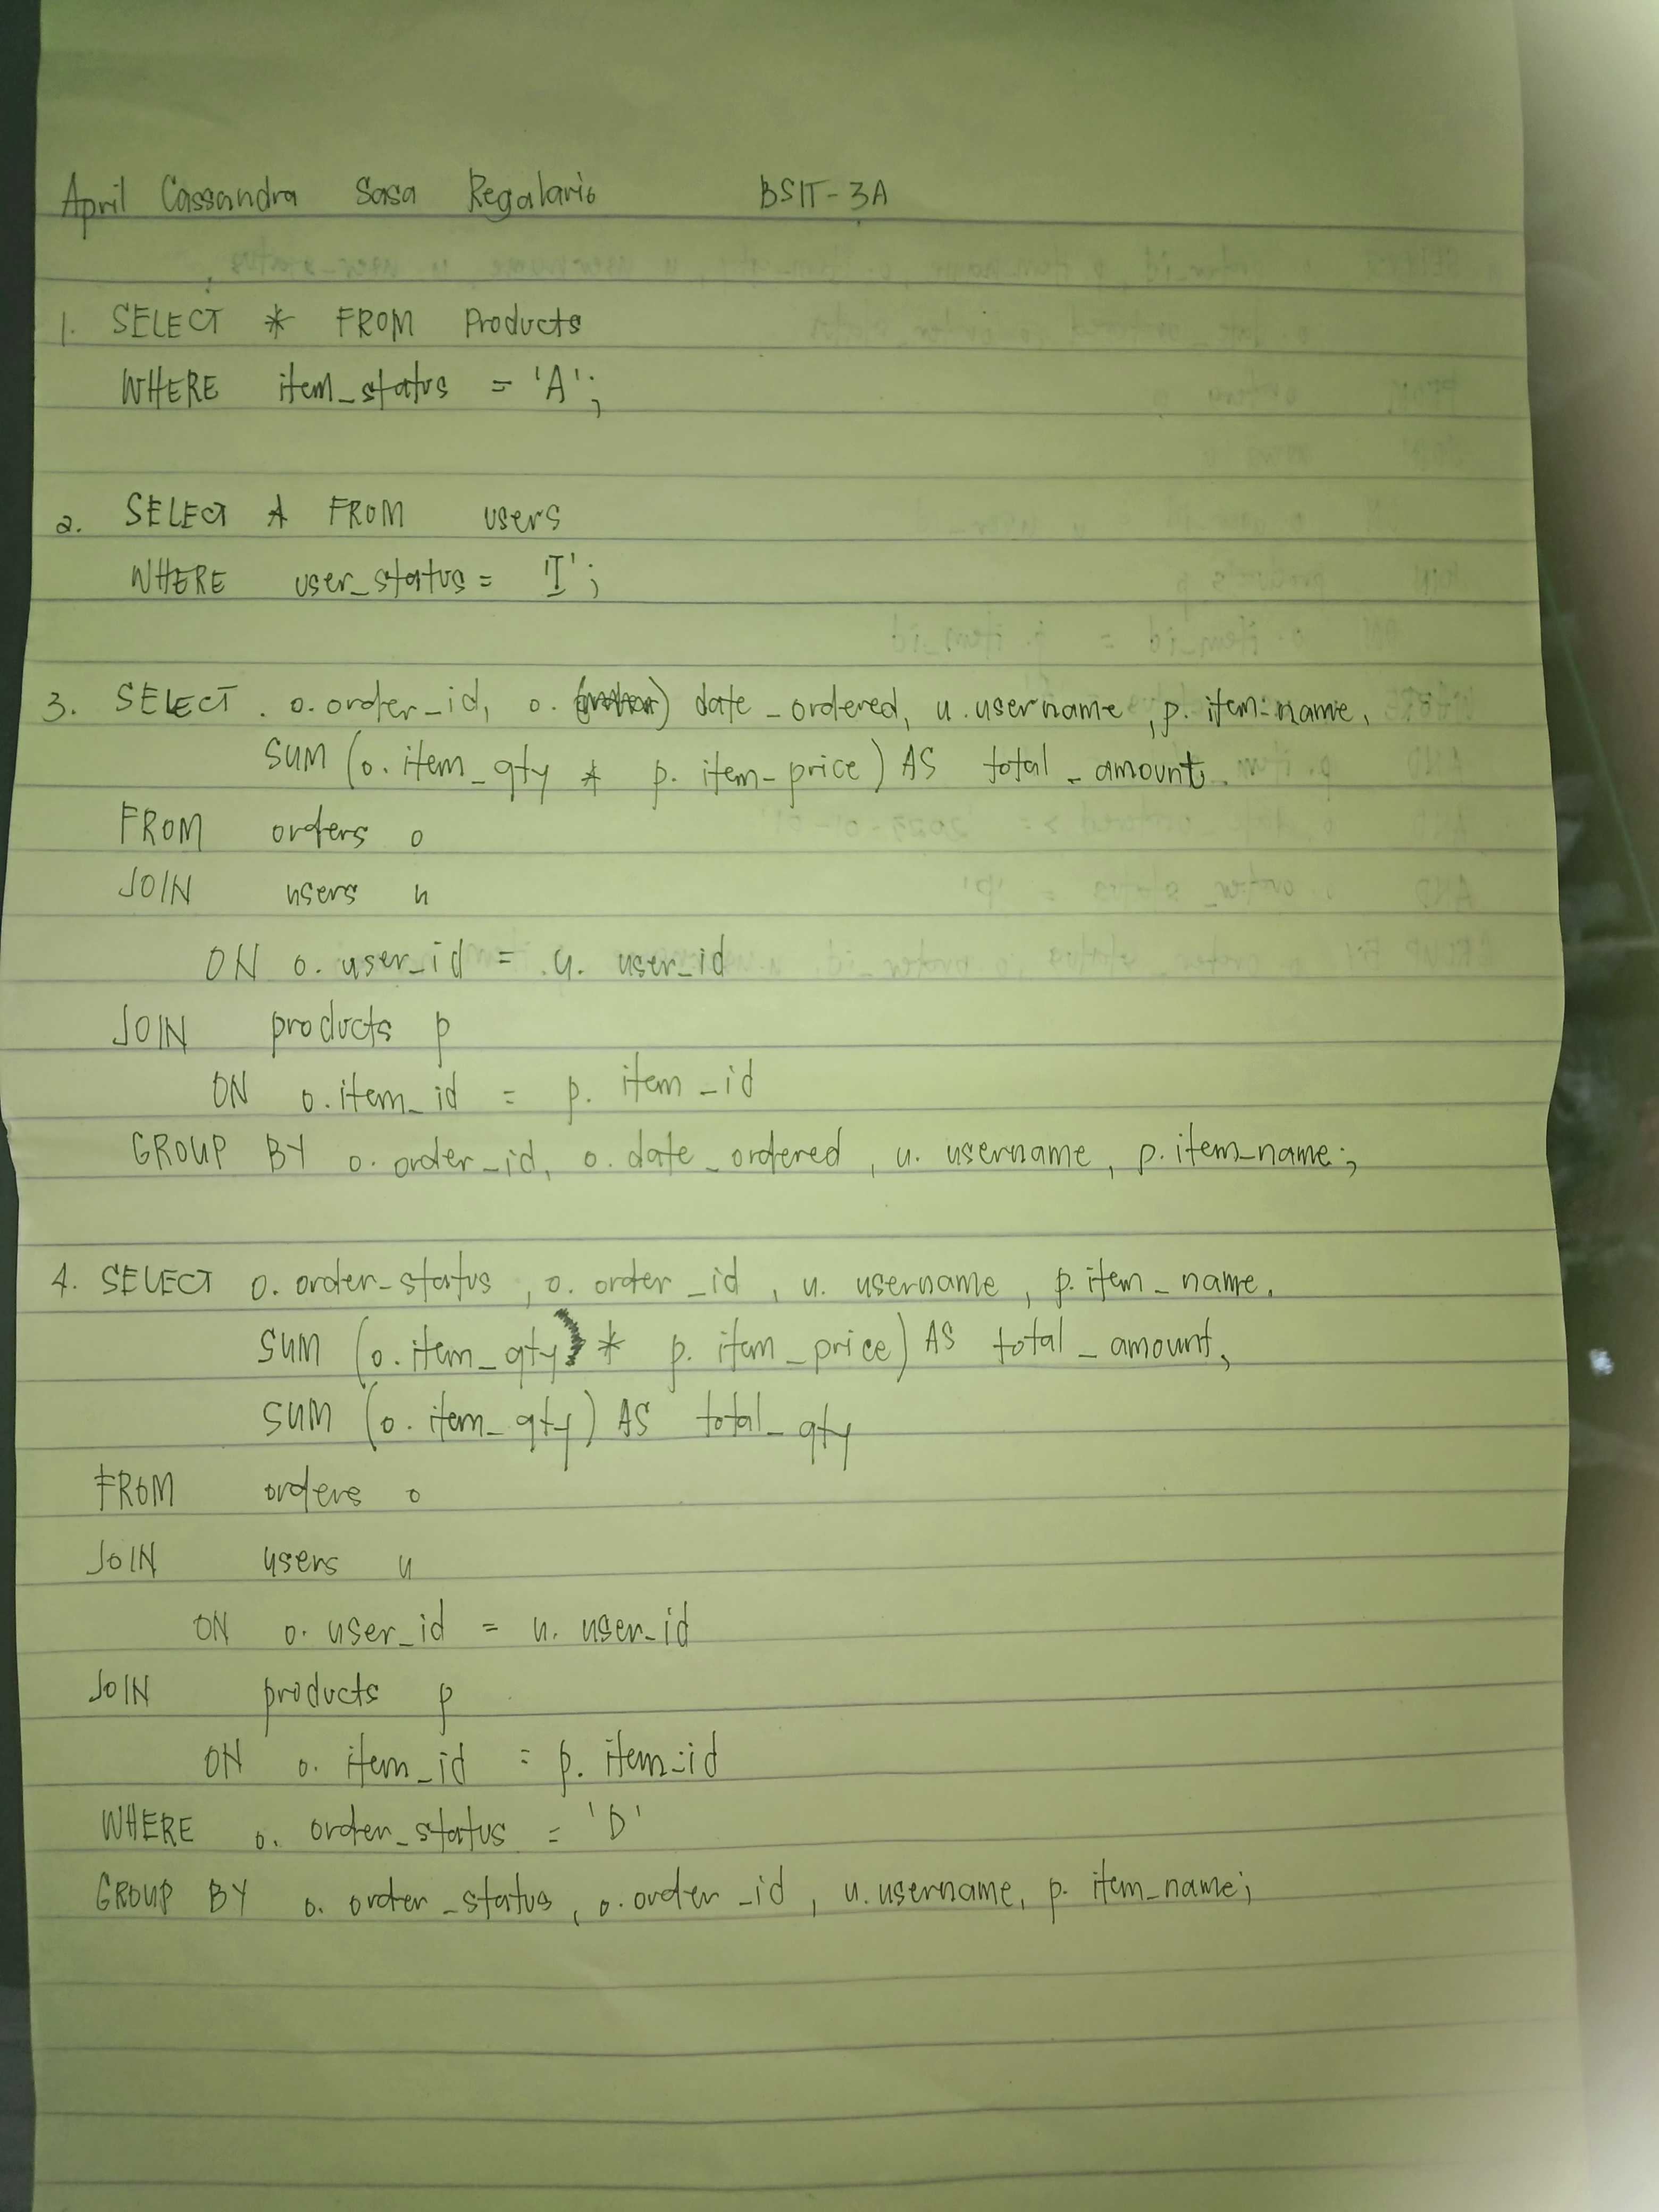 April Cassandra Sasa Regalario BSIT-3A
1. SELECT * FROM Products
WHERE item_status = 'A';
2. SELECT * FROM users
WHERE user_status = 'I';
3. SELECT o.order_id, o. date_ordered, u.username, p.item-name,
SUM (o.item_qty * p.item-price) AS total_amount
FROM orders o
JOIN users u
ON o.user_id = u.user_id
JOIN products p
ON o.item_id = p.item_id
GROUP BY o.order_id, o.date_ordered, u.username, p.item_name;
4. SELECT o.order-status, o.order_id, u.username, p.item_name,
SUM (o.item_qty * p.item_price) AS total_amount,
SUM (o.item_qty) AS total_qty
FROM orders o
JOIN users u
ON o.user_id = u.user_id
JOIN products p
ON o.item_id = p.item_id
WHERE o.order_status = 'D'
GROUP BY o.order_status, o.order_id, u.username, p.item_name;